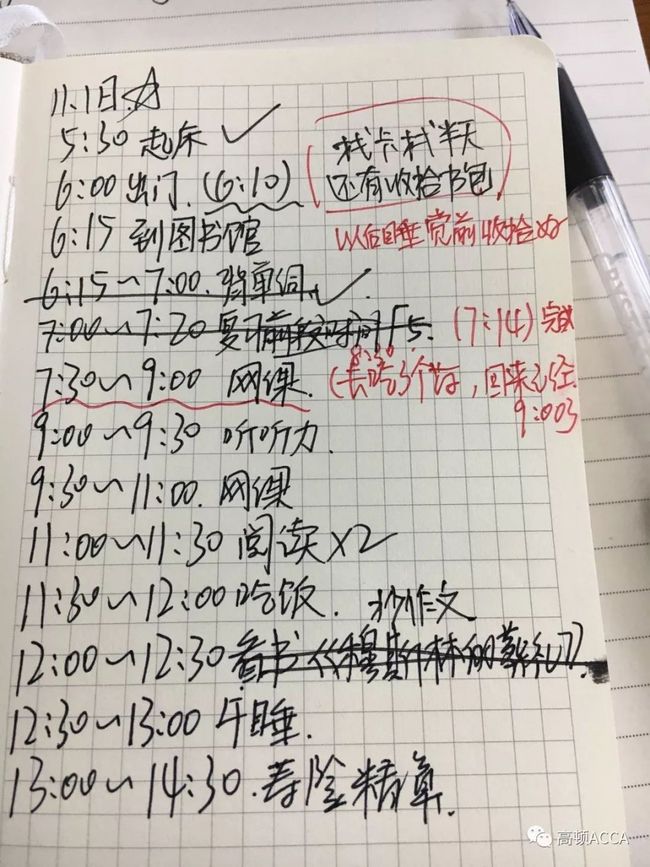 11.1日.☆
5:30 起床 ✓
6:00 出门. (6:10)
找卡找半天
还有收拾书包.
6:15 到图书馆
以后睡觉前收拾好
6:15~7:00. 背单词 ✓
7:00~7:20 复习 (7:14) 完成
7:30~9:00 网课.
8:30
(去吃了个饭, 回来已经
9:00了
9:00~9:30 听听力.
9:30~11:00. 网课
11:00~11:30 阅读×2
11:30~12:00 吃饭. 抄作文
12:00~12:30 看书《穆斯林的葬礼》.
12:30~13:00 午睡.
13:00~14:30. 寿险精算.
高顿ACCA